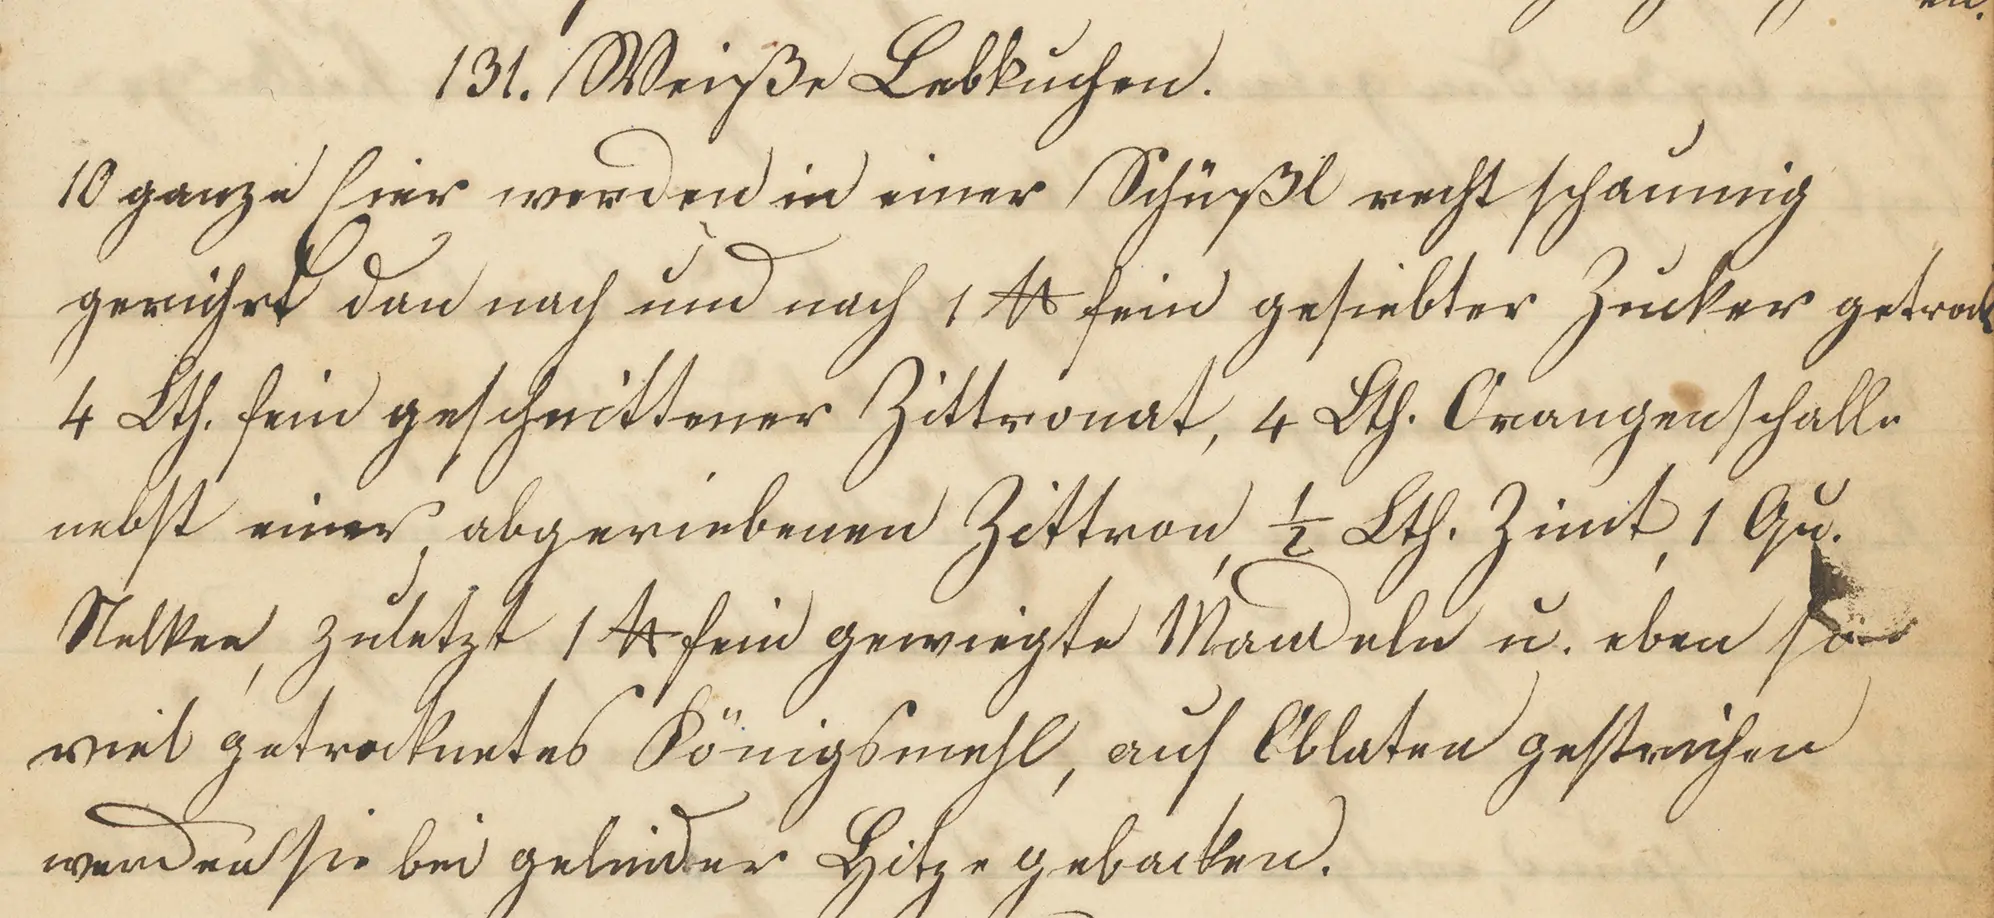 131. Weiße Lebkuchen.
10 ganze Eier werden in einer Schüßl recht schaumig
gerührt dan nach und nach 1 ℔ fein gesiebter Zucker getrock
4 Lth. fein geschnittener Zittronat, 4 Lth. Orangenschalle
nebst einer, abgeriebenen Zittron, ½ Lth. Zimt, 1 Qu.
Nelken, zuletzt 1 ℔ fein gewiegte Mandeln u. eben so
viel getrocknetes Königsmehl, auf Oblaten gestrichen
werden sie bei gelinder Hitze gebacken.